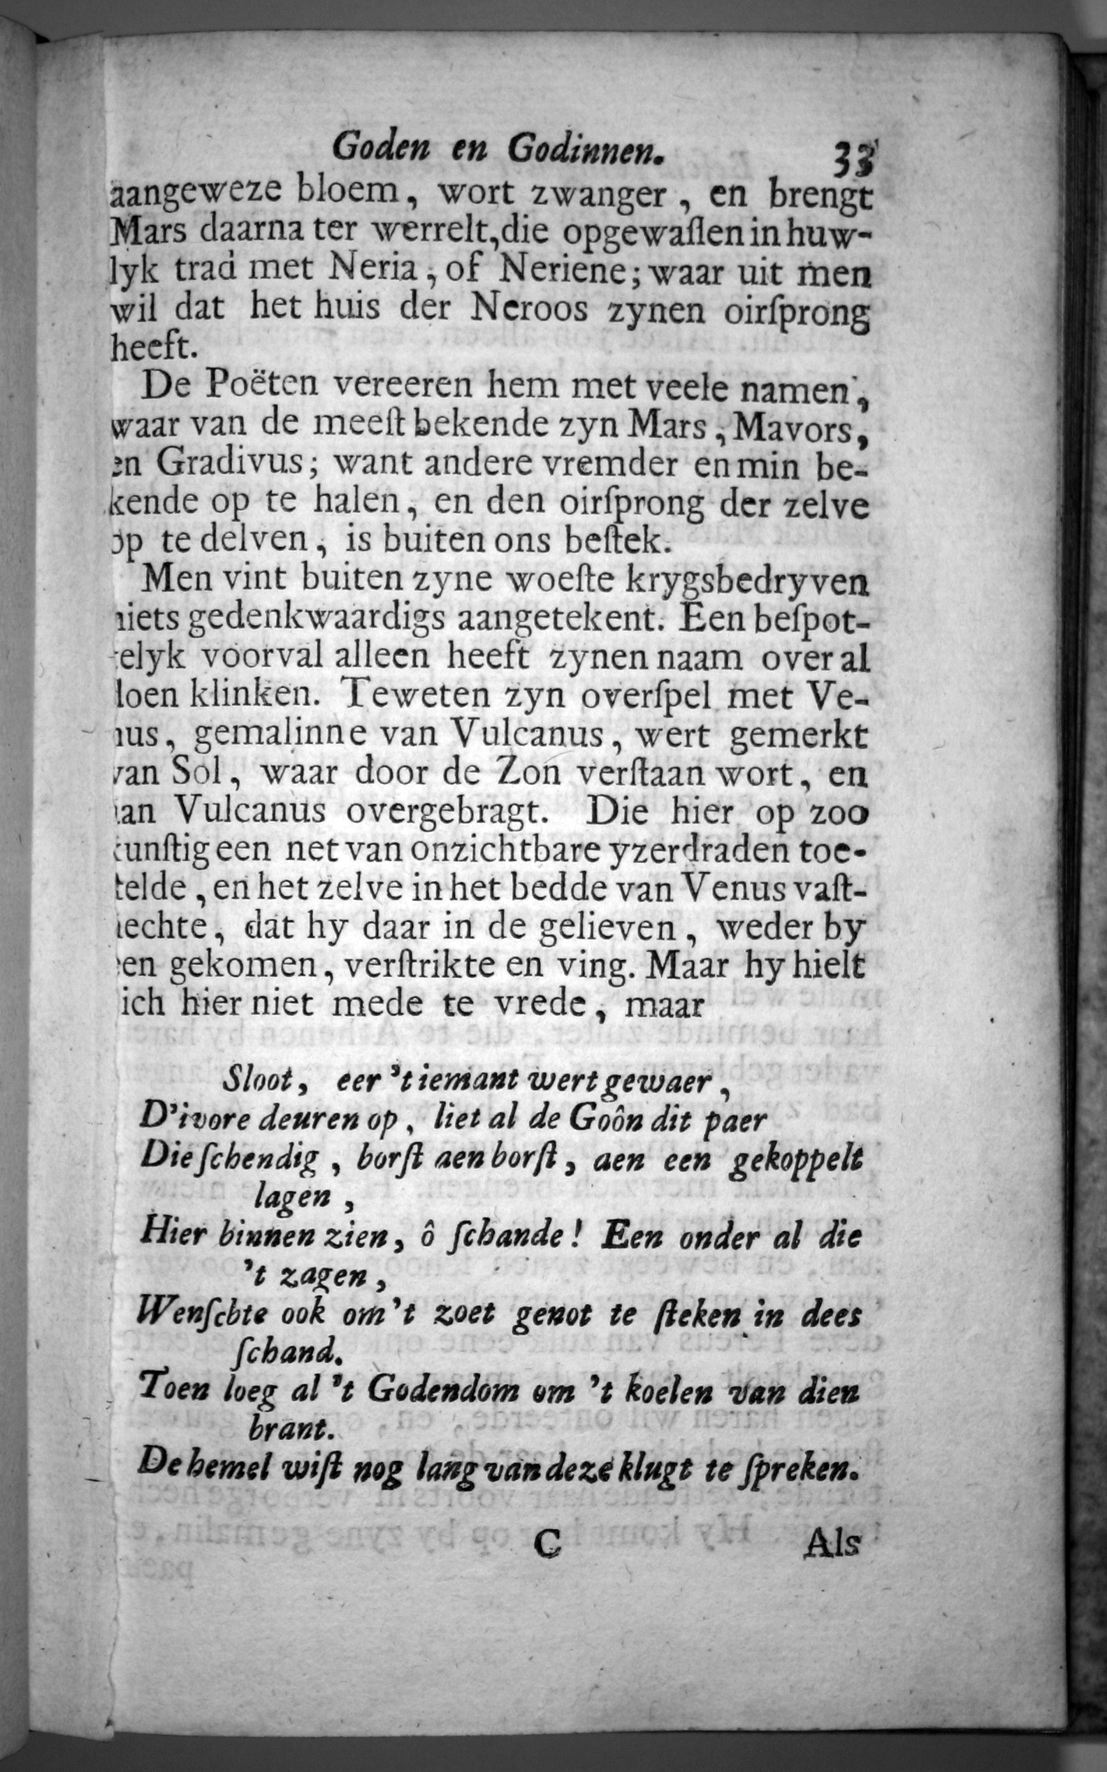 Goden en Godinnen. 33
aangeweze bloem, wort zwanger, en brengt
Mars daarna ter werrelt, die opgewaſſen in huw-
lyk trad met Neria, of Neriene; waar uit men
wil dat het huis der Neroos zynen oirſprong
heeft.
De Poëten vereeren hem met veele namen,
waar van de meeſt bekende zyn Mars, Mavors,
en Gradivus; want andere vremder en min be-
kende op te halen, en den oirſprong der zelve
op te delven, is buiten ons beſtek.
Men vint buiten zyne woeſte krygsbedryven
niets gedenkwaardigs aangetekent. Een beſpot-
telyk voorval alleen heeft zynen naam over al
doen klinken. Teweten zyn overſpel met Ve-
nus, gemalinne van Vulcanus, wert gemerkt
van Sol, waar door de Zon verſtaan wort, en
aan Vulcanus overgebragt. Die hier op zoo
kunſtig een net van onzichtbare yzerdraden toe-
ſtelde, en het zelve in het bedde van Venus vaſt-
hechte, dat hy daar in de gelieven, weder by
een gekomen, verſtrikte en ving. Maar hy hielt
zich hier niet mede te vrede, maar
Sloot, eer 't iemant wert gewaer,
D'ivore deuren op, liet al de Goôn dit paer
Die ſchendig, borſt aen borſt, aen een gekoppelt
lagen,
Hier binnen zien, ô ſchande! Een onder al die
't zagen,
Wenſchte ook om 't zoet genot te ſteken in dees
ſchand.
Toen loeg al 't Godendom om 't koelen van dien
brant.
De hemel wiſt nog lang van deze klugt te ſpreken.
C Als